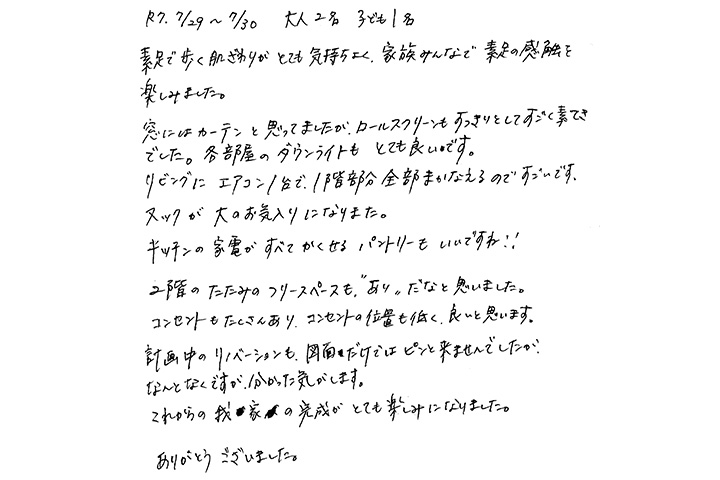 R7. 7/29〜7/30 大人2名 子ども1名
素足で歩く肌ざわりがとても気持ちよく、家族みんなで素足の感触を
楽しみました。
窓にはカーテンと思ってましたが、ロールスクリーンもすっきりとしてすごく素てき
でした。各部屋のダウンライトもとても良いです。
リビングにエアコン1台で、1階部分全部まかなえるのですごいです、
ヌックが大のお気入りになりました。
キッチンの家電がすべてかくせるパントリーもいいですね!!
2階のたたみのフリースペースも、"あり"だなと思いました。
コンセントもたくさんあり、コンセントの位置も低く、良いと思います。
計画中のリノベーションも、図面だけではピンと来ませんでしたが、
なんとなくですが、分かった気がします。
これからの我家の完成がとても楽しみになりました。
ありがとうございました。